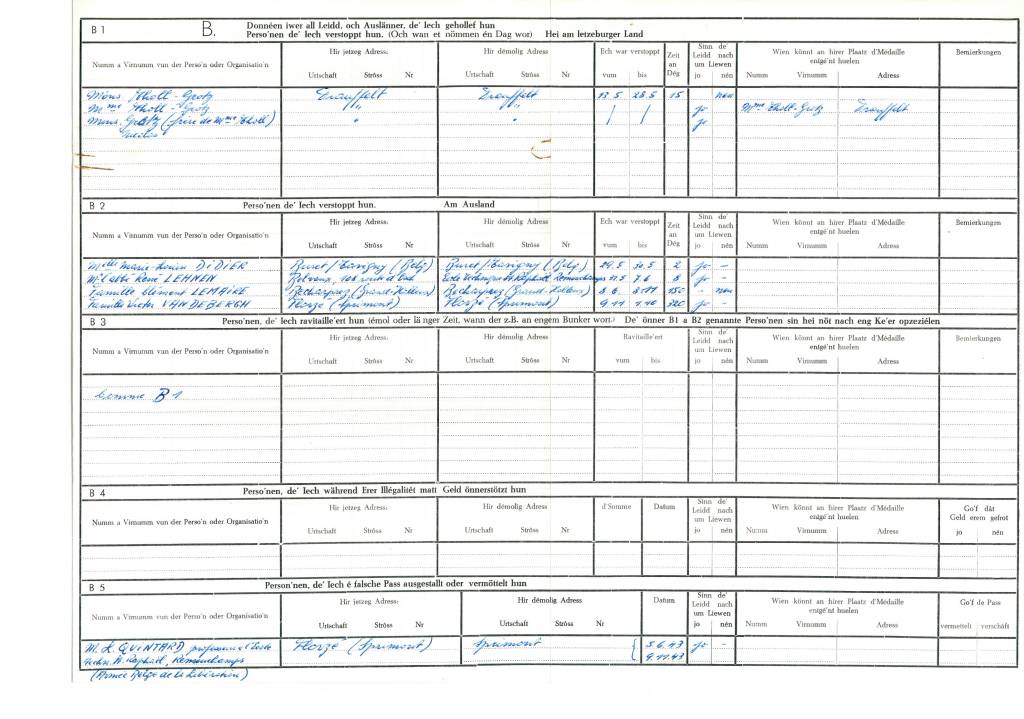 B 1 B. Donnéen iwer all Leidd, och Auslänner, de' Iech gehollef hun
Perso'nen de' Iech verstoppt hun. (Och wan et nömmen én Dag wor) Hei am letzeburger Land
Numm a Virnumm vun der Perso'n oder Organisatio'n Hir jetzeg Adress: Hir démolig Adress Ech war verstoppt Zeit an Dég Sinn de' Leidd nach um Liewen Wien könnt an hirer Plaatz d'Médaille entgé'nt huelen Bemierkungen
Urtschaft Ströss Nr Urtschaft Ströss Nr vum bis jo nén Numm Virnumm Adress
Mons Drauffelt Drauffelt 13.5 28.5 15 nen
Mme jo Mme Drauffelt
Mons. (frère de Mme) jo
B 2 Perso'nen de' Iech verstoppt hun. Am Ausland
Numm a Virnumm vun der Perso'n oder Organisatio'n Hir jetzeg Adress: Hir démolig Adress Ech war verstoppt Zeit an Dég Sinn de' Leidd nach um Liewen Wien könnt an hirer Plaatz d'Médaille entgé'nt huelen Bemierkungen
Urtschaft Ströss Nr Urtschaft Ströss Nr vum bis jo nén Numm Virnumm Adress
Melle Marie-Louise DIDIER Buret/Tavigny (Belg) Buret/Tavigny (Belg) 29.5 30.5 2 jo -
M. l'abbé René LEHNEN 7.6 8 jo -
Famille Clément LEMAIRE 8.6. 150 - nen
Famille Victor VANDEBERGH Florzé (Sprimont) Florzé (Sprimont) 9.11 320 jo -
B 3 Perso'nen, de' Iech ravitaille'ert hun (émol oder lä nger Zeit, wann der z.B. an engem Bunker wort.) De' önner B1 a B2 genannte Perso'nen sin hei nöt nach eng Ke'er opzeziélen
Numm a Virnumm vun der Perso'n oder Organisatio'n Hir jetzeg Adress: Hir démolig Adress Ravitaille'ert Sinn de' Leidd nach um Liewen Wien könnt an hirer Plaatz d'Médaille entgé'nt huelen Bemierkungen
Urtschaft Ströss Nr Urtschaft Ströss Nr vum bis jo nén Numm Virnumm Adress
comme B 1
B 4 Perso'nen, de' Iech während Erer Illégalitét matt Geld önnerstötzt hun
Numm a Virnumm vun der Perso'n oder Organisatio'n Hir jetzeg Adress: Hir démolig Adress d'Somme Datum Sinn de' Leidd nach um Liewen Wien könnt an hirer Plaatz d'Médaille entgé'nt huelen Go'f dät Geld erem gefrot
Urtschaft Ströss Nr Urtschaft Ströss Nr jo nén Numm Virnumm Adress jo nén
B 5 Person'nen, de' Iech é falsche Pass ausgestallt oder vermöttelt hun
Numm a Virnumm vun der Perso'n oder Organisatio'n Hir jetzeg Adress: Hir démolig Adress Datum Sinn de' Leidd nach um Liewen Wien könnt an hirer Plaatz d'Médaille entgé'nt huelen Go'f de Pass
Urtschaft Ströss Nr Urtschaft Ströss Nr jo nén Numm Virnumm Adress vermettelt verschäft
M. L. QUINTARD, professeur Florzé (Sprimont) Sprimont 5.6.43 jo -
techn. St. Raphaël, Remouchamps 9.11.43
(Armée Belge de la Libération)